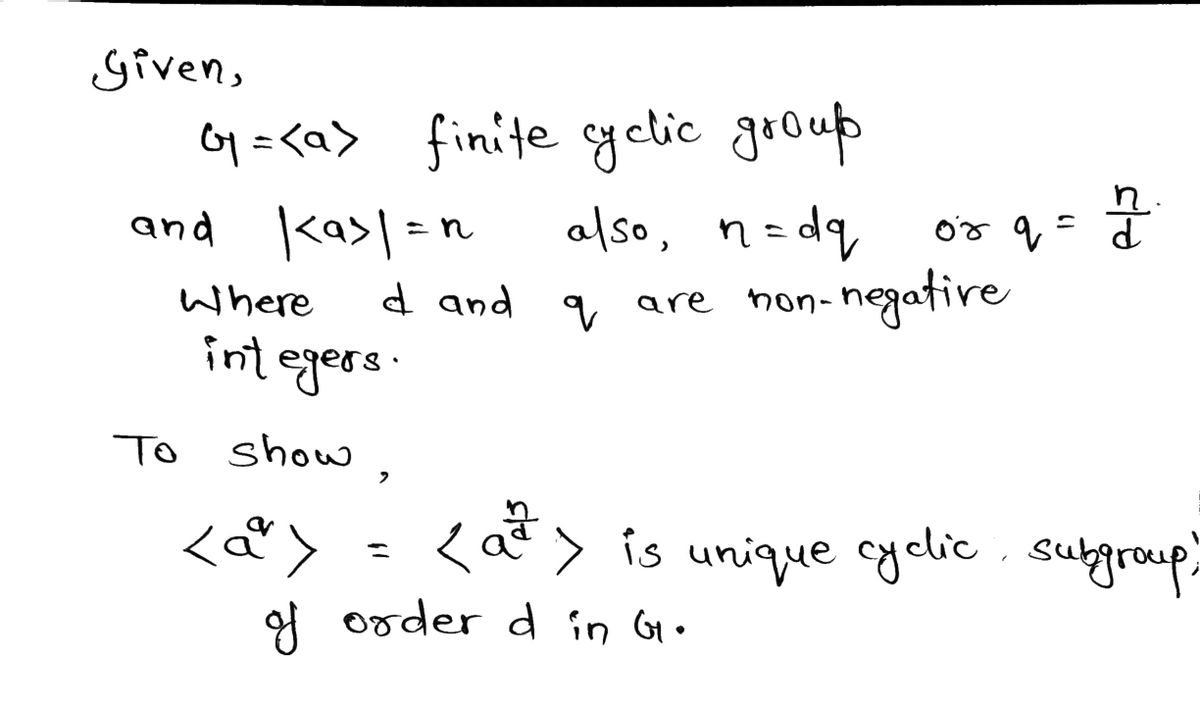 Given,
G = <a> finite cyclic group
and |<a>| = n also, n = dq or q = n/d.
Where d and q are non-negative
integers.
To show,
<a^q> = <a^(n/d)> is unique cyclic subgroup
of order d in G.